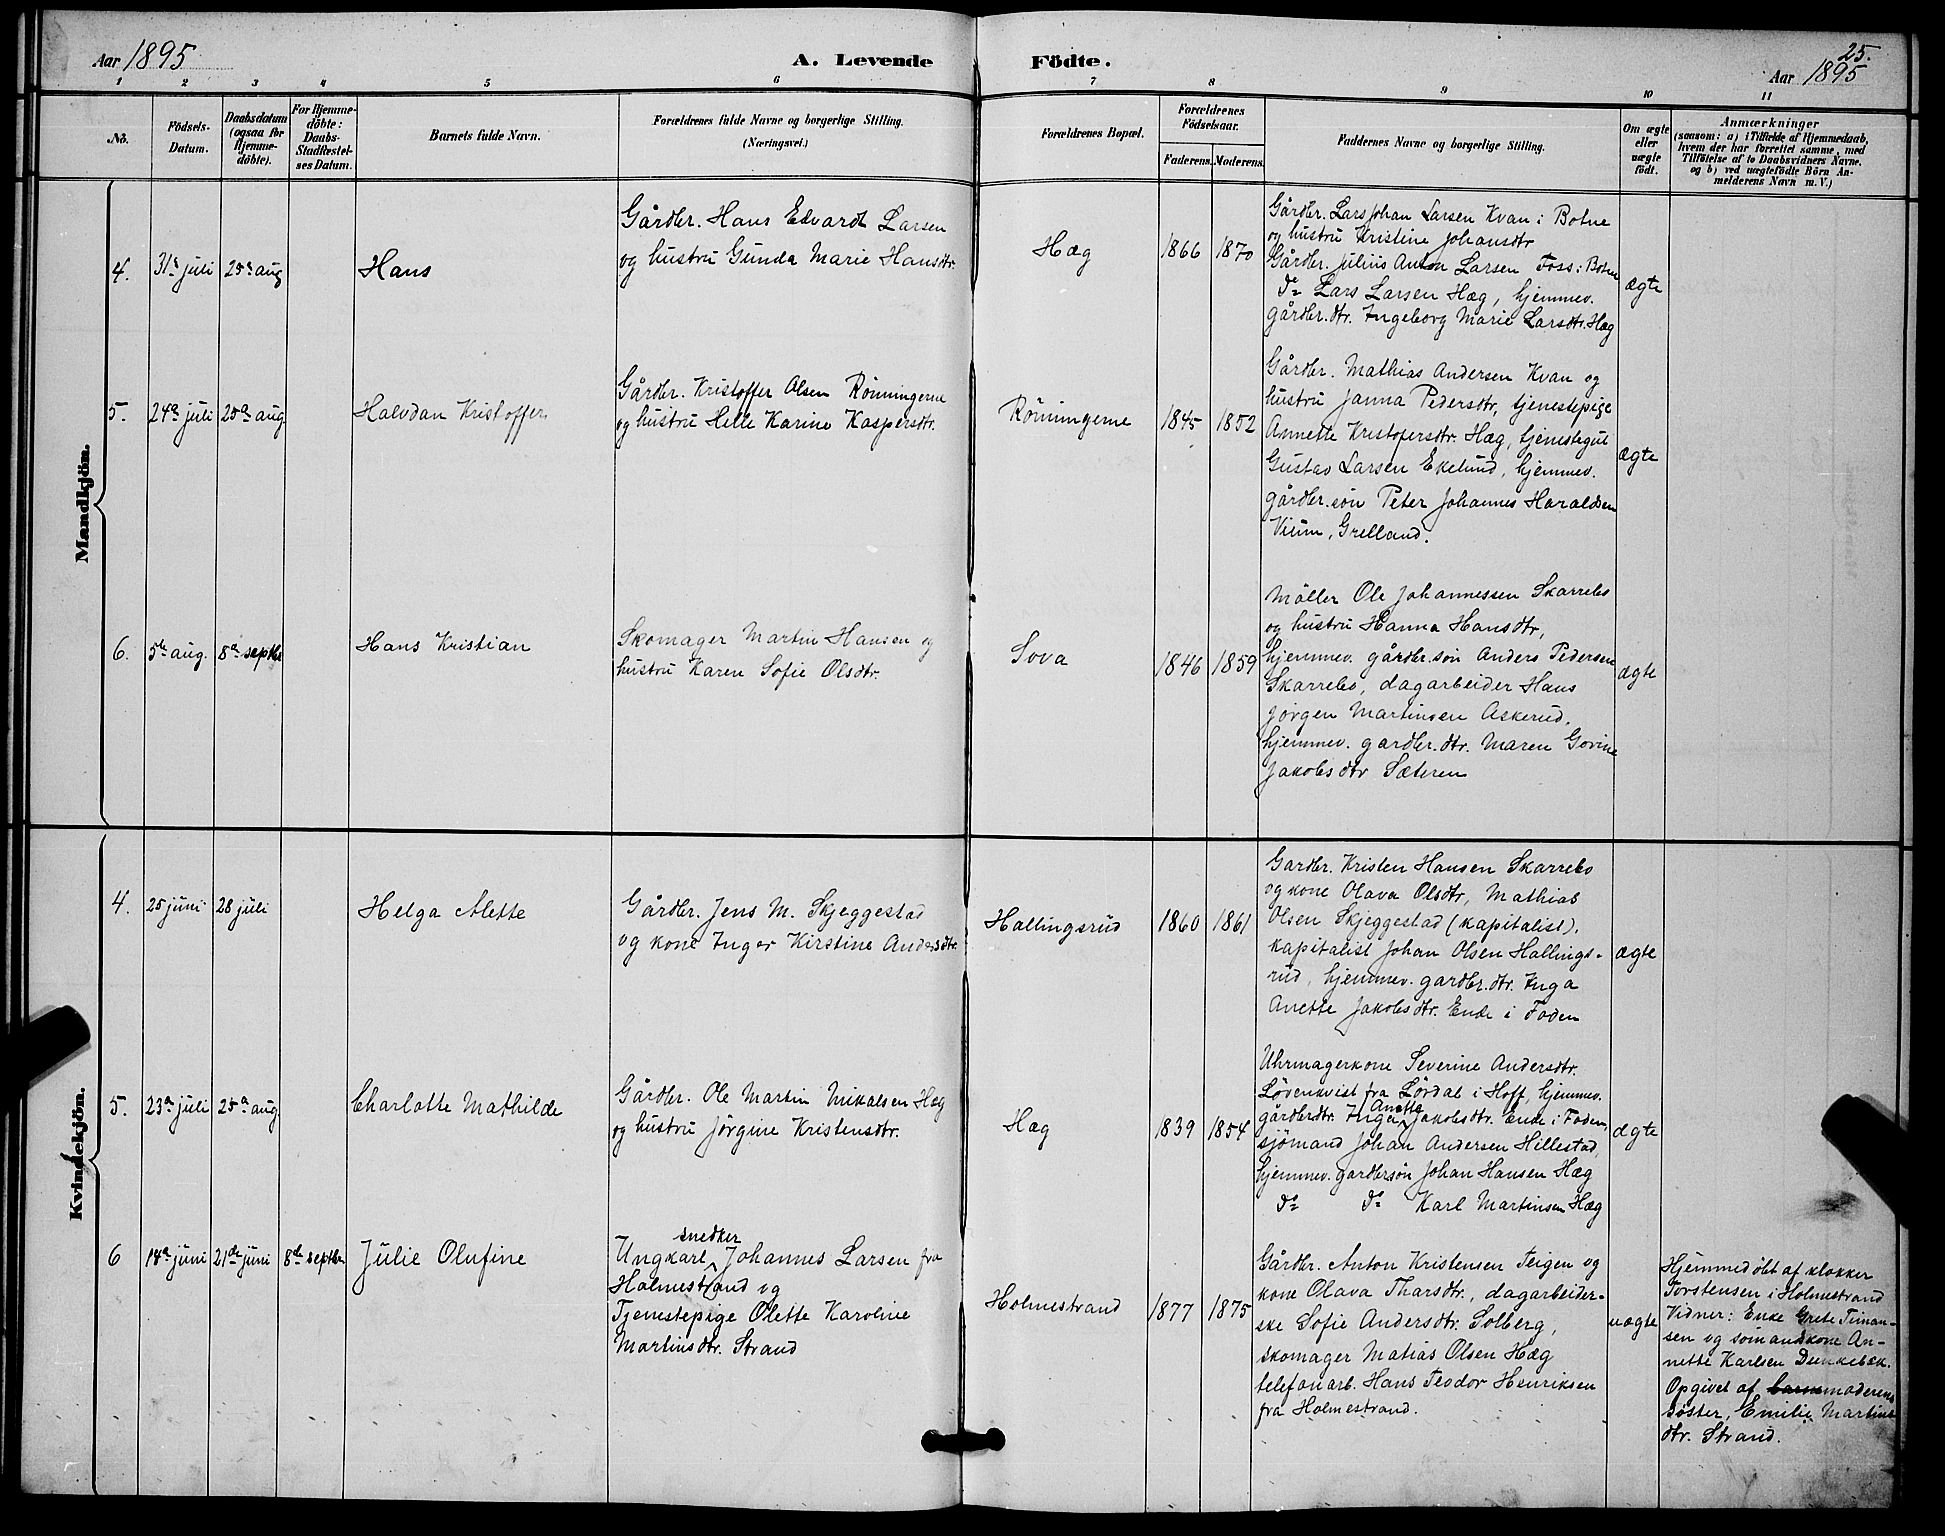 Aar 1895
A. Levende Födte.
25.
Aar 1895
1 2 3 4 5 6 7 8 9 10 11
No.
Födsels-
Datum.
Daabsdatum
(ogsaa for
Hjemme-
döbte).
For Hjemme-
döbte:
Daabs-
Stadfestel-
ses Datum.
Barnets fulde Navn.
Forældrenes fulde Navne og borgerlige Stilling.
(Næringsvei.)
Forældrenes Bopæl.
Forældrenes
Födselsaar.
Faderens. Moderens.
Faddernes Navne og borgerlige Stilling.
Om ægte
eller
uægte
födt.
Anmærkninger
(saasom: a) i Tilfælde af Hjemmedaab,
hvem der har forrettet samme, med
Tilföielse af to Daabsvidners Navne.
og b) ved uægtefödte Börn An-
melderens Navn m. V.)
Mandkjön.
4.
31te juli
25de aug
Hans
Gårdbr. Hans Edvardt Larsen
og hustru Gunda Marie Hansdtr.
Hæg
1866
1870
Gårdbr. Lars Johan Larsen Kvan i Botne
og hustru Kristine Johansdtr
Gårdbr. Julius Anton Larsen Foss i Botne
Do Lars Larsen Hæg, hjemmev.
gårdbr.dtr. Ingeborg Marie Larsdtr. Hæg
ægte
5.
24de juli
25de aug
Halvdan Kristoffer
Gårdbr. Kristoffer Olsen Rönningerne
og hustru Helle Karine Kaspersdtr.
Rönningerne
1845
1852
Gårdbr. Mathias Andersen Kvan og
hustru Janna Pedersdtr, tjenestepige
Annette Kristofersdtr. Hæg, tjenestegut
Gustav Larsen Ekelund, hjemmev.
gårdbr.sön Peter Johannes Haraldsen
Vium, Grelland.
ægte
6.
5te aug.
8de septbr
Hans Kristian
Skomager Martin Hansen og
hustru Karen Sofie Olsdtr.
Sova
1846
1859
Möller Ole Johannessen Skarrebo
og hustru Hanna Hansdtr,
hjemmev. gårdbr.sön Anders Pedersen
Skarrebo, dagarbeider Hans
Jörgen Martinsen Askerud,
hjemmev. gardbr.dtr. Maren Govine
Jakobsdtr Sæteren
ægte
Kvindekjön.
4.
25 juni
28 juli
Helga Alette
Gårdbr. Jens M. Skjeggestad
og kone Inger Kirstine Andersdtr.
Hallingsrud
1860
1861
Gardbr. Kristen Hansen Skarrebo
og kone Olava Olsdtr, Mathias
Olsen Skjeggestad (kapitalist),
kapitalist Johan Olsen Hallings-
rud, hjemmev. gardbr.dtr. Inga
Anette Jakobsdtr. Ende i Foden
ægte
5.
23de juli
25de aug
Charlotte Mathilde
Gårdbr. Ole Martin Mikalsen Hæg
og hustru Jörgine Kristensdtr.
Hæg
1839
1854
Uhrmagerkone Severine Andersdtr.
Lövenkvist fra Lördal i Hoff, hjemmev.
gårdbrdtr. Inga Anette Jakobsdtr. Ende i Foden,
sjömand Johan Andersen Hillestad,
hjemmev. gardbrsön Johan Hansen Hæg
Do Do Karl Martinsen Hæg
ægte
6
14de juni
21de juni
8de septbr
Julie Olufine
Ungkarl snedker Johannes Larsen fra
Holmestrand og
Tjenestepige Olette Karoline
Martinsdtr. Strand
Holmestrand
1877
1875
Gårdbr. Anton Kristensen Teigen og
kone Olava Tharsdtr., dagarbeider-
ske Sofie Andersdtr. Solberg,
skomager Matias Olsen Hæg
telefonarb. Hans Teodor Henriksen
fra Holmestrand.
uægte
Hjemmedöbt af klokker
Torstensen i Holmestrand
Vidner: Enke Grete Timan-
sen og sömandskone An-
nette Karlsen Dunkebæk.
Opgivet af moderens
söster, Emilie Martins
dtr. Strand.